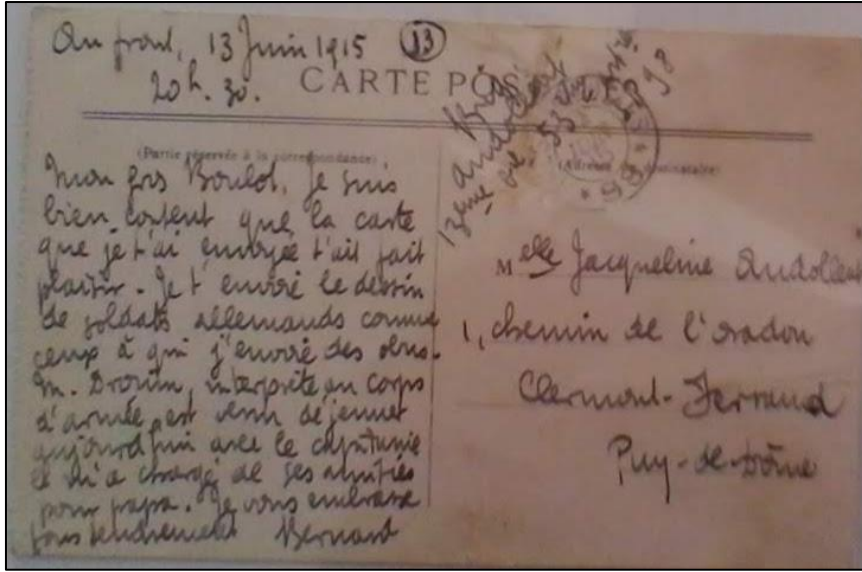 Au front, 13 Juin 1915 (13)
20 h. 30.
CARTE POSTALE
(Partie réservée à la correspondance)
mon gros Boulot, je suis
bien content que la carte
que je t'ai envoyée t'ait fait
plaisir. Je t'envoie le dessin
de soldats allemands comme
ceux à qui j'envoie des obus.
M. Drouin, interprète au corps
d'armée est venu déjeuner
aujourd'hui avec le capitaine
et m'a chargé de ses amitiés
pour papa. Je vous embrasse
tous tendrement Bernard
Andollent
13ème 53
98
(Adresse du destinataire)
Melle Jacqueline Audollent
1, chemin de l'oradou
Clermont-Ferrand
Puy-de-Dôme